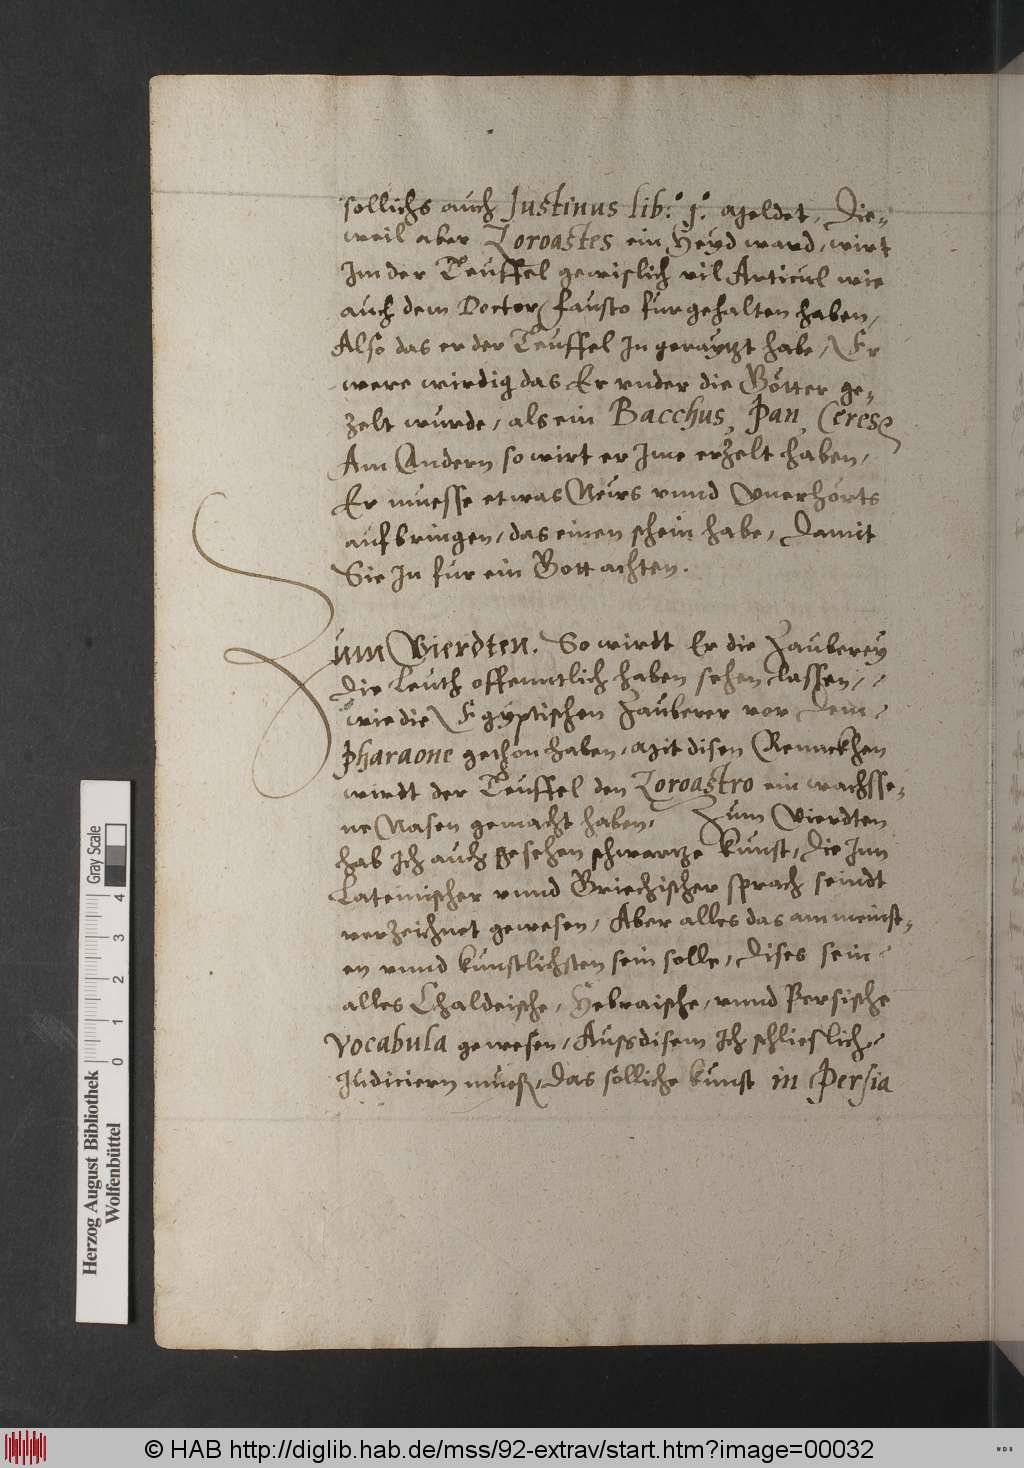 sollichs auch Justinus lib: j: meldet, Die-
weil aber Zoroastes ein Heyd ward, wirt
Im der Teuffel gewislich vil Articul wie
auch dem Doctor Fausto furgehalten haben,
Also das er der Teuffel In geraytzt habe, Er
were wirdig das Er vnder die Götter ge-
zelt wurde, als ein Bacchus, Pan, Ceres
Am Andern so wirt er Ime erzelt haben,
Er muesse etwas Neus vnnd Vnerhörts
aufbringen, das einen schein habe, Damit
Sie In fur ein Gott achten.
Zum Vierdten. So wirdt Er die Zauberey
die Leuth offenntlich haben sehen lassen,
wie die Egyptischen Zauberer vor dem
Pharaone gethon haben, mit disen Renckhen
wirdt der Teuffel den Zoroastro ein wachsse-
ne Nasen gemacht haben, Zum Vierdten
hab Ich auch gesehen schwartze kunst, Die Inn
Lateinischer vnnd Griechischer sprach seindt
verzeichnet gewesen, Aber alles das am meinst-
en vnnd kunstlichsten sein solle, Dises sein
alles Chaldeische, Hebraische, vnnd Persische
Vocabula gewesen, Auss disem Ich schlieslich
Judiciern mueß, Das solliche kunst in Persia
Herzog August Bibliothek
Wolfenbüttel
0 1 2 3 4
Gray Scale
© HAB http://diglib.hab.de/mss/92-extrav/start.htm?image=00032